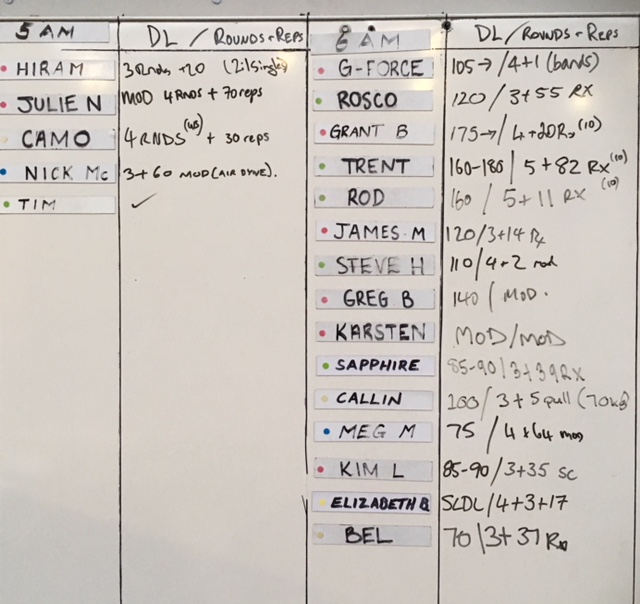 5 AM DL / ROUNDS + REPS
HIRAM 3Rnds +20 (211singles)
JULIE N MOD 4RNDS + 70reps
CAMO 4RNDS + 30reps
NICK Mc 3+60 MOD (AIR DYNE).
TIM ✓
6 AM DL / ROUNDS + REPS
G-FORCE 105→ / 4+1 (bands)
ROSCO 120 / 3+55 RX
GRANT B 175→ / 4+20Rx (10)
TRENT 160-180 / 5+82 Rx (10)
ROD 160 / 5+11 RX (10)
JAMES M 120/3+14 Rx
STEVE H 110/4+2 mod
GREG B 140 / MOD.
KARSTEN MOD/MOD
SAPPHIRE 85-90/3+39RX
CALLIN 100/3+5 pull (70kg)
MEG M 75 / 4+64 mod
KIM L 85-90/3+35 SC
ELIZABETH B SLDL/4+3+17
BEL 70/3+37 Rx